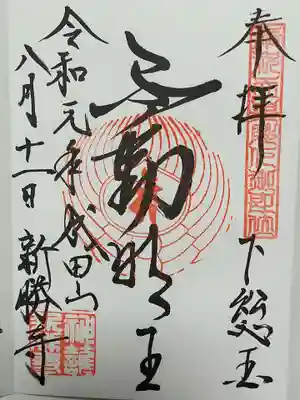 奉拝
下総国
不動明王
成田山
新勝寺
令和元年
八月十一日